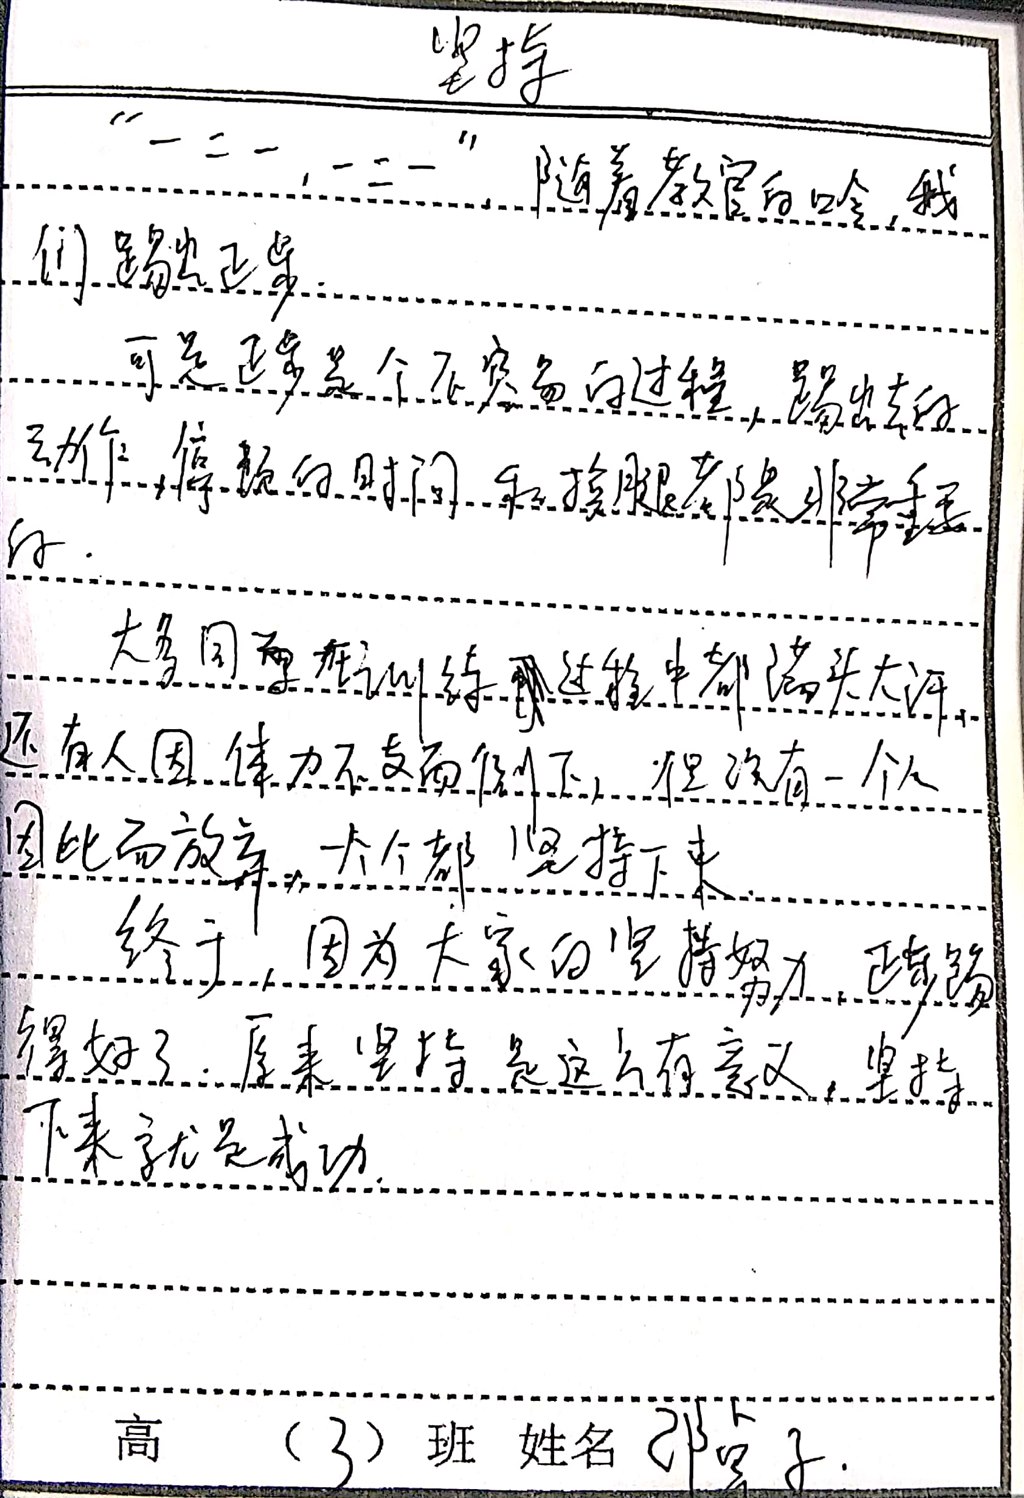 坚持
“一二一,一二一”,随着教官的口令,我
们踢出正步.
可是正步是个不容易的过程,踢出去的
动作,停顿的时间和换腿都是非常重要
的.
大多同学在训练过程中都满头大汗,
还有人因体力不支而倒下,但没有一个人
因此而放弃,个个都坚持下来.
终于,因为大家的坚持努力,正步踢
得好了.原来坚持是这么有意义,坚持
下来就是成功.
高 (3)班 姓名